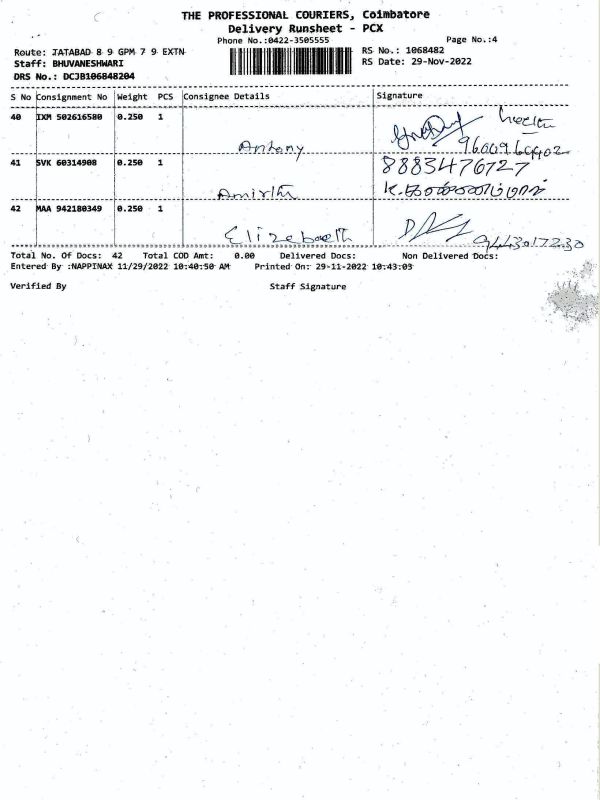 THE PROFESSIONAL COURIERS, Coimbatore
Delivery Runsheet - PCX
Phone No.:0422-3505555
Page No.:4
Route: TATABAD 8 9 GPM 7 9 EXTN
RS No.: 1068482
Staff: BHUVANESHWARI
RS Date: 29-Nov-2022
DRS No.: DCJB106848204
S No Consignment No Weight PCS Consignee Details Signature
40 IXM 502616580 0.250 1
Antony
41 SVK 60314908 0.250 1 8883476727
Amirth
42 MAA 942180349 0.250 1
Elizebaeth 9443017230
Total No. Of Docs: 42 Total COD Amt: 0.00 Delivered Docs: Non Delivered Docs:
Entered By :NAPPINAX 11/29/2022 10:40:50 AM Printed On: 29-11-2022 10:43:03
Verified By Staff Signature